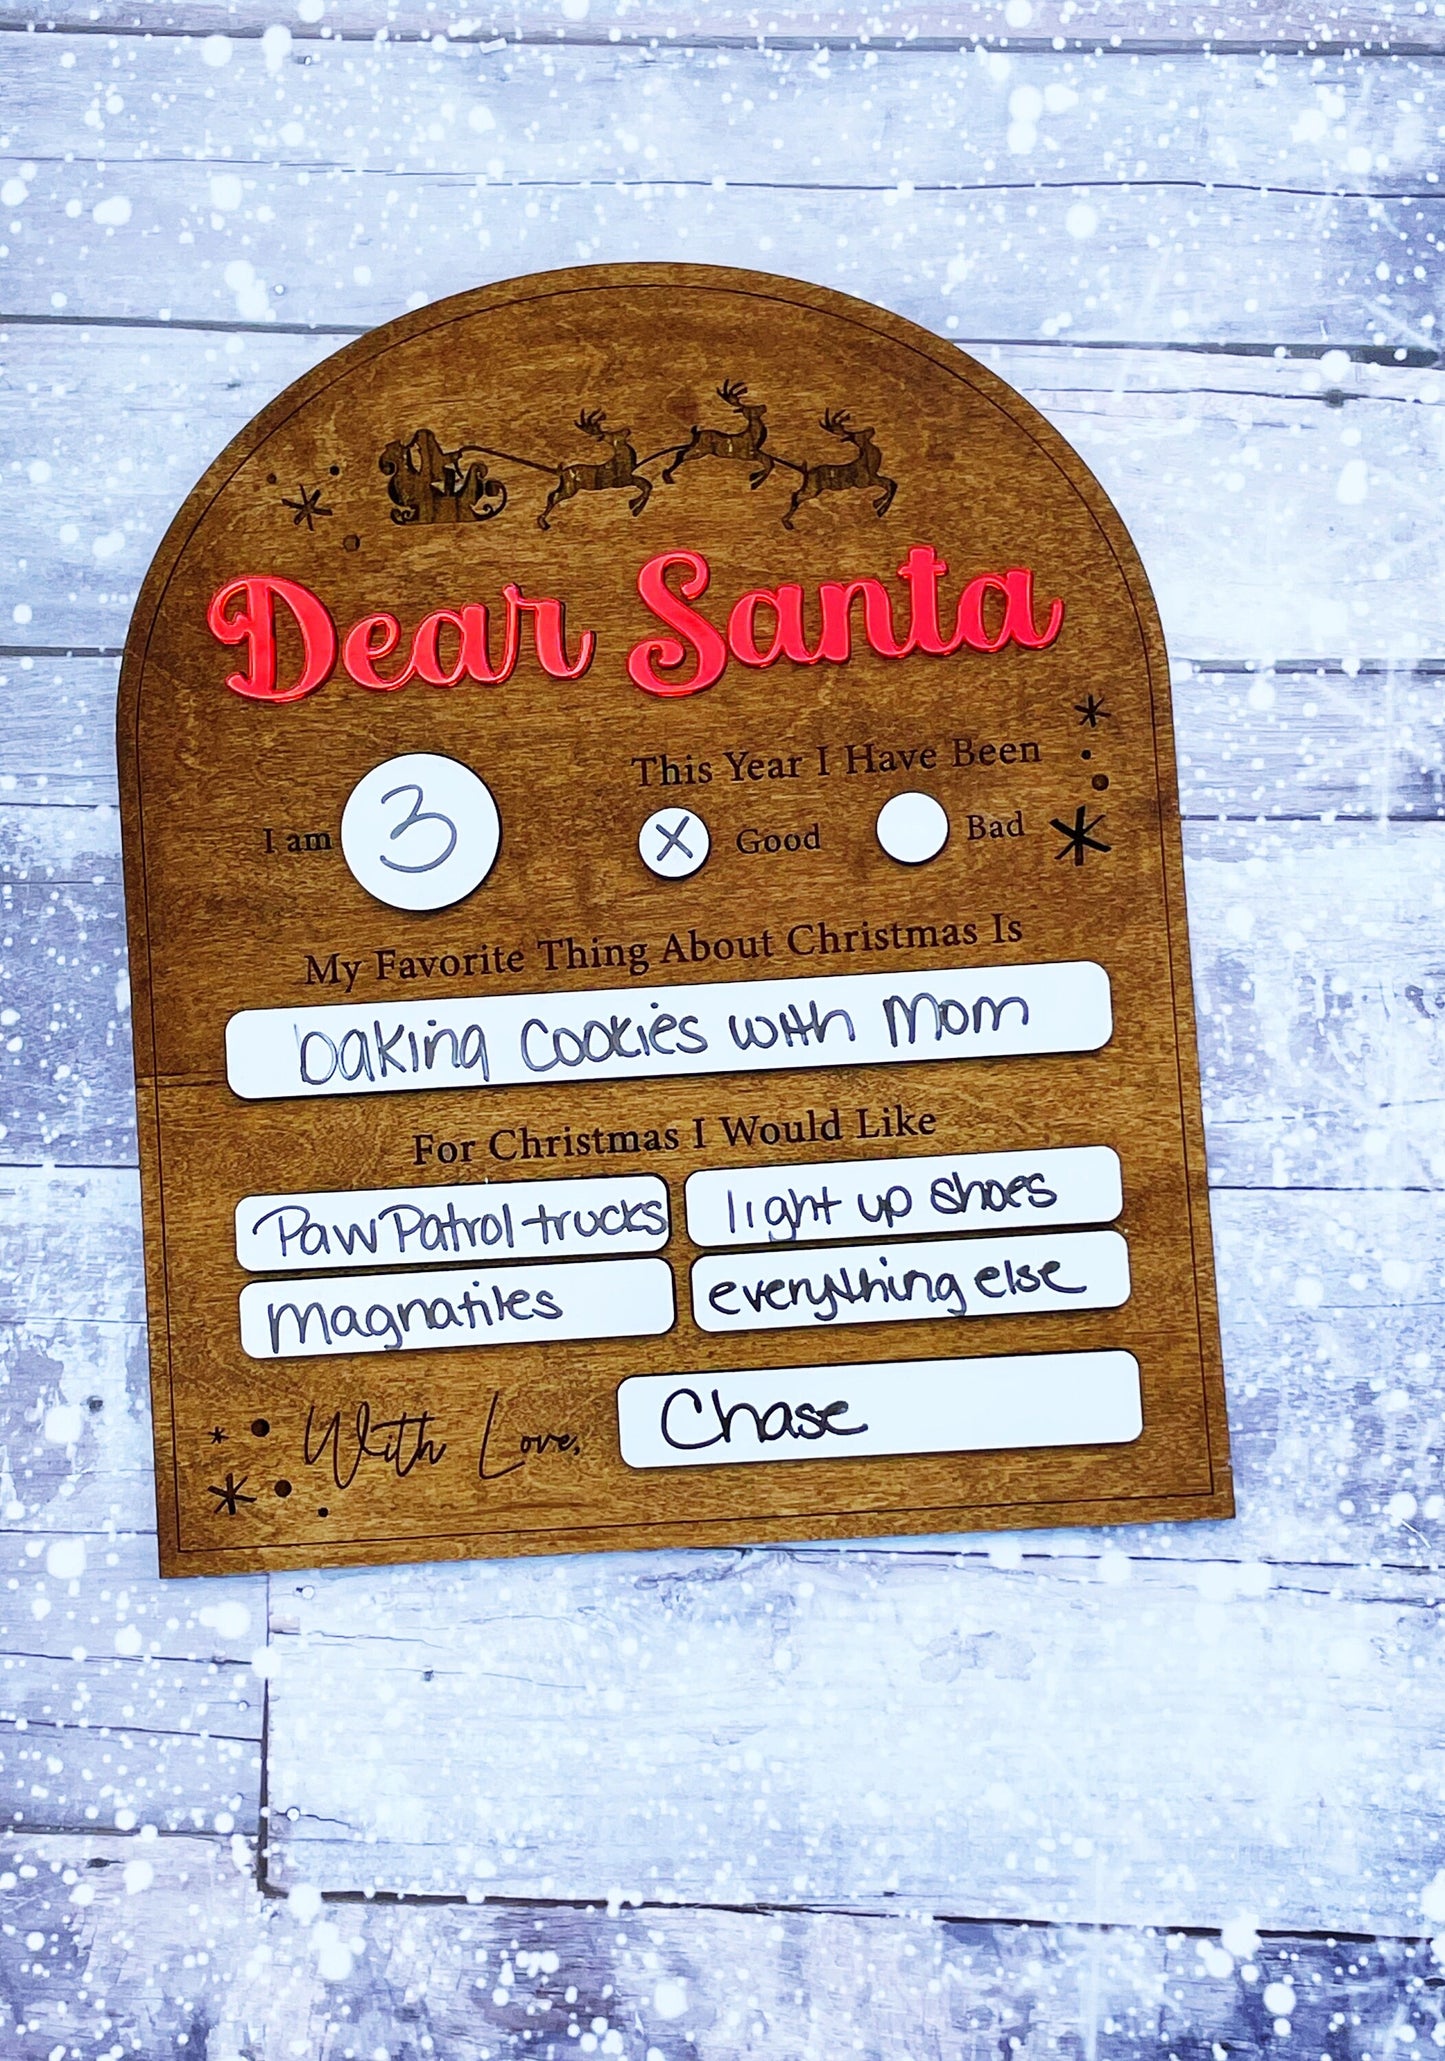 Dear Santa
This Year I Have Been
I am 3 X Good Bad
My Favorite Thing About Christmas Is
baking cookies with Mom
For Christmas I Would Like
Paw Patrol trucks light up shoes
magnatiles everything else
With Love, Chase